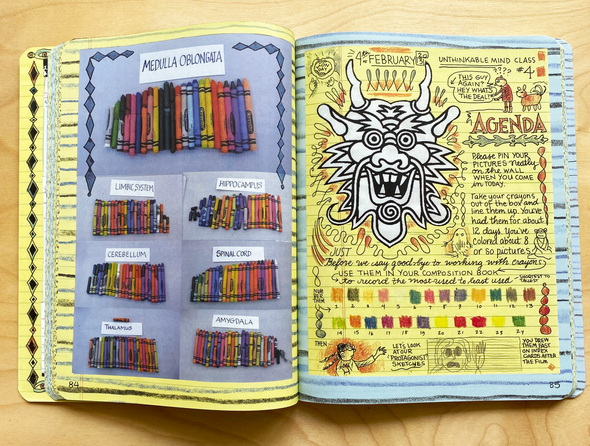 MEDULLA OBLONGATA
LIMBIC SYSTEM
HIPPOCAMPUS
CEREBELLUM
SPINAL CORD
THALAMUS
AMYGDALA
84
4th FEBRUARY
UNTHINKABLE MIND CLASS
#4
????
THIS GUY
AGAIN?
HEY WHAT'S
THE DEAL?
AGENDA
Please PIN YOUR
PICTURES neatly
on the WALL
WHEN YOU COME
IN TODAY.
Take your crayons
out of the box and
line them up. You've
had them for about
12 days. You've
colored about 8
or so pictures.
JUST
Before we say goodbye to working with crayons,
USE THEM IN YOUR COMPOSITION BOOK
to record the most-used to least used
SHORTEST TO
TALLEST
NUM
BER
THEM
THEN
14 15 16 17 18 19 20 21 22 23 24
LET'S LOOK
AT OUR
"PROTAGONIST"
SKETCHES
YOU DREW
THEM FAST
ON INDEX
CARDS AFTER
THE FILM
85